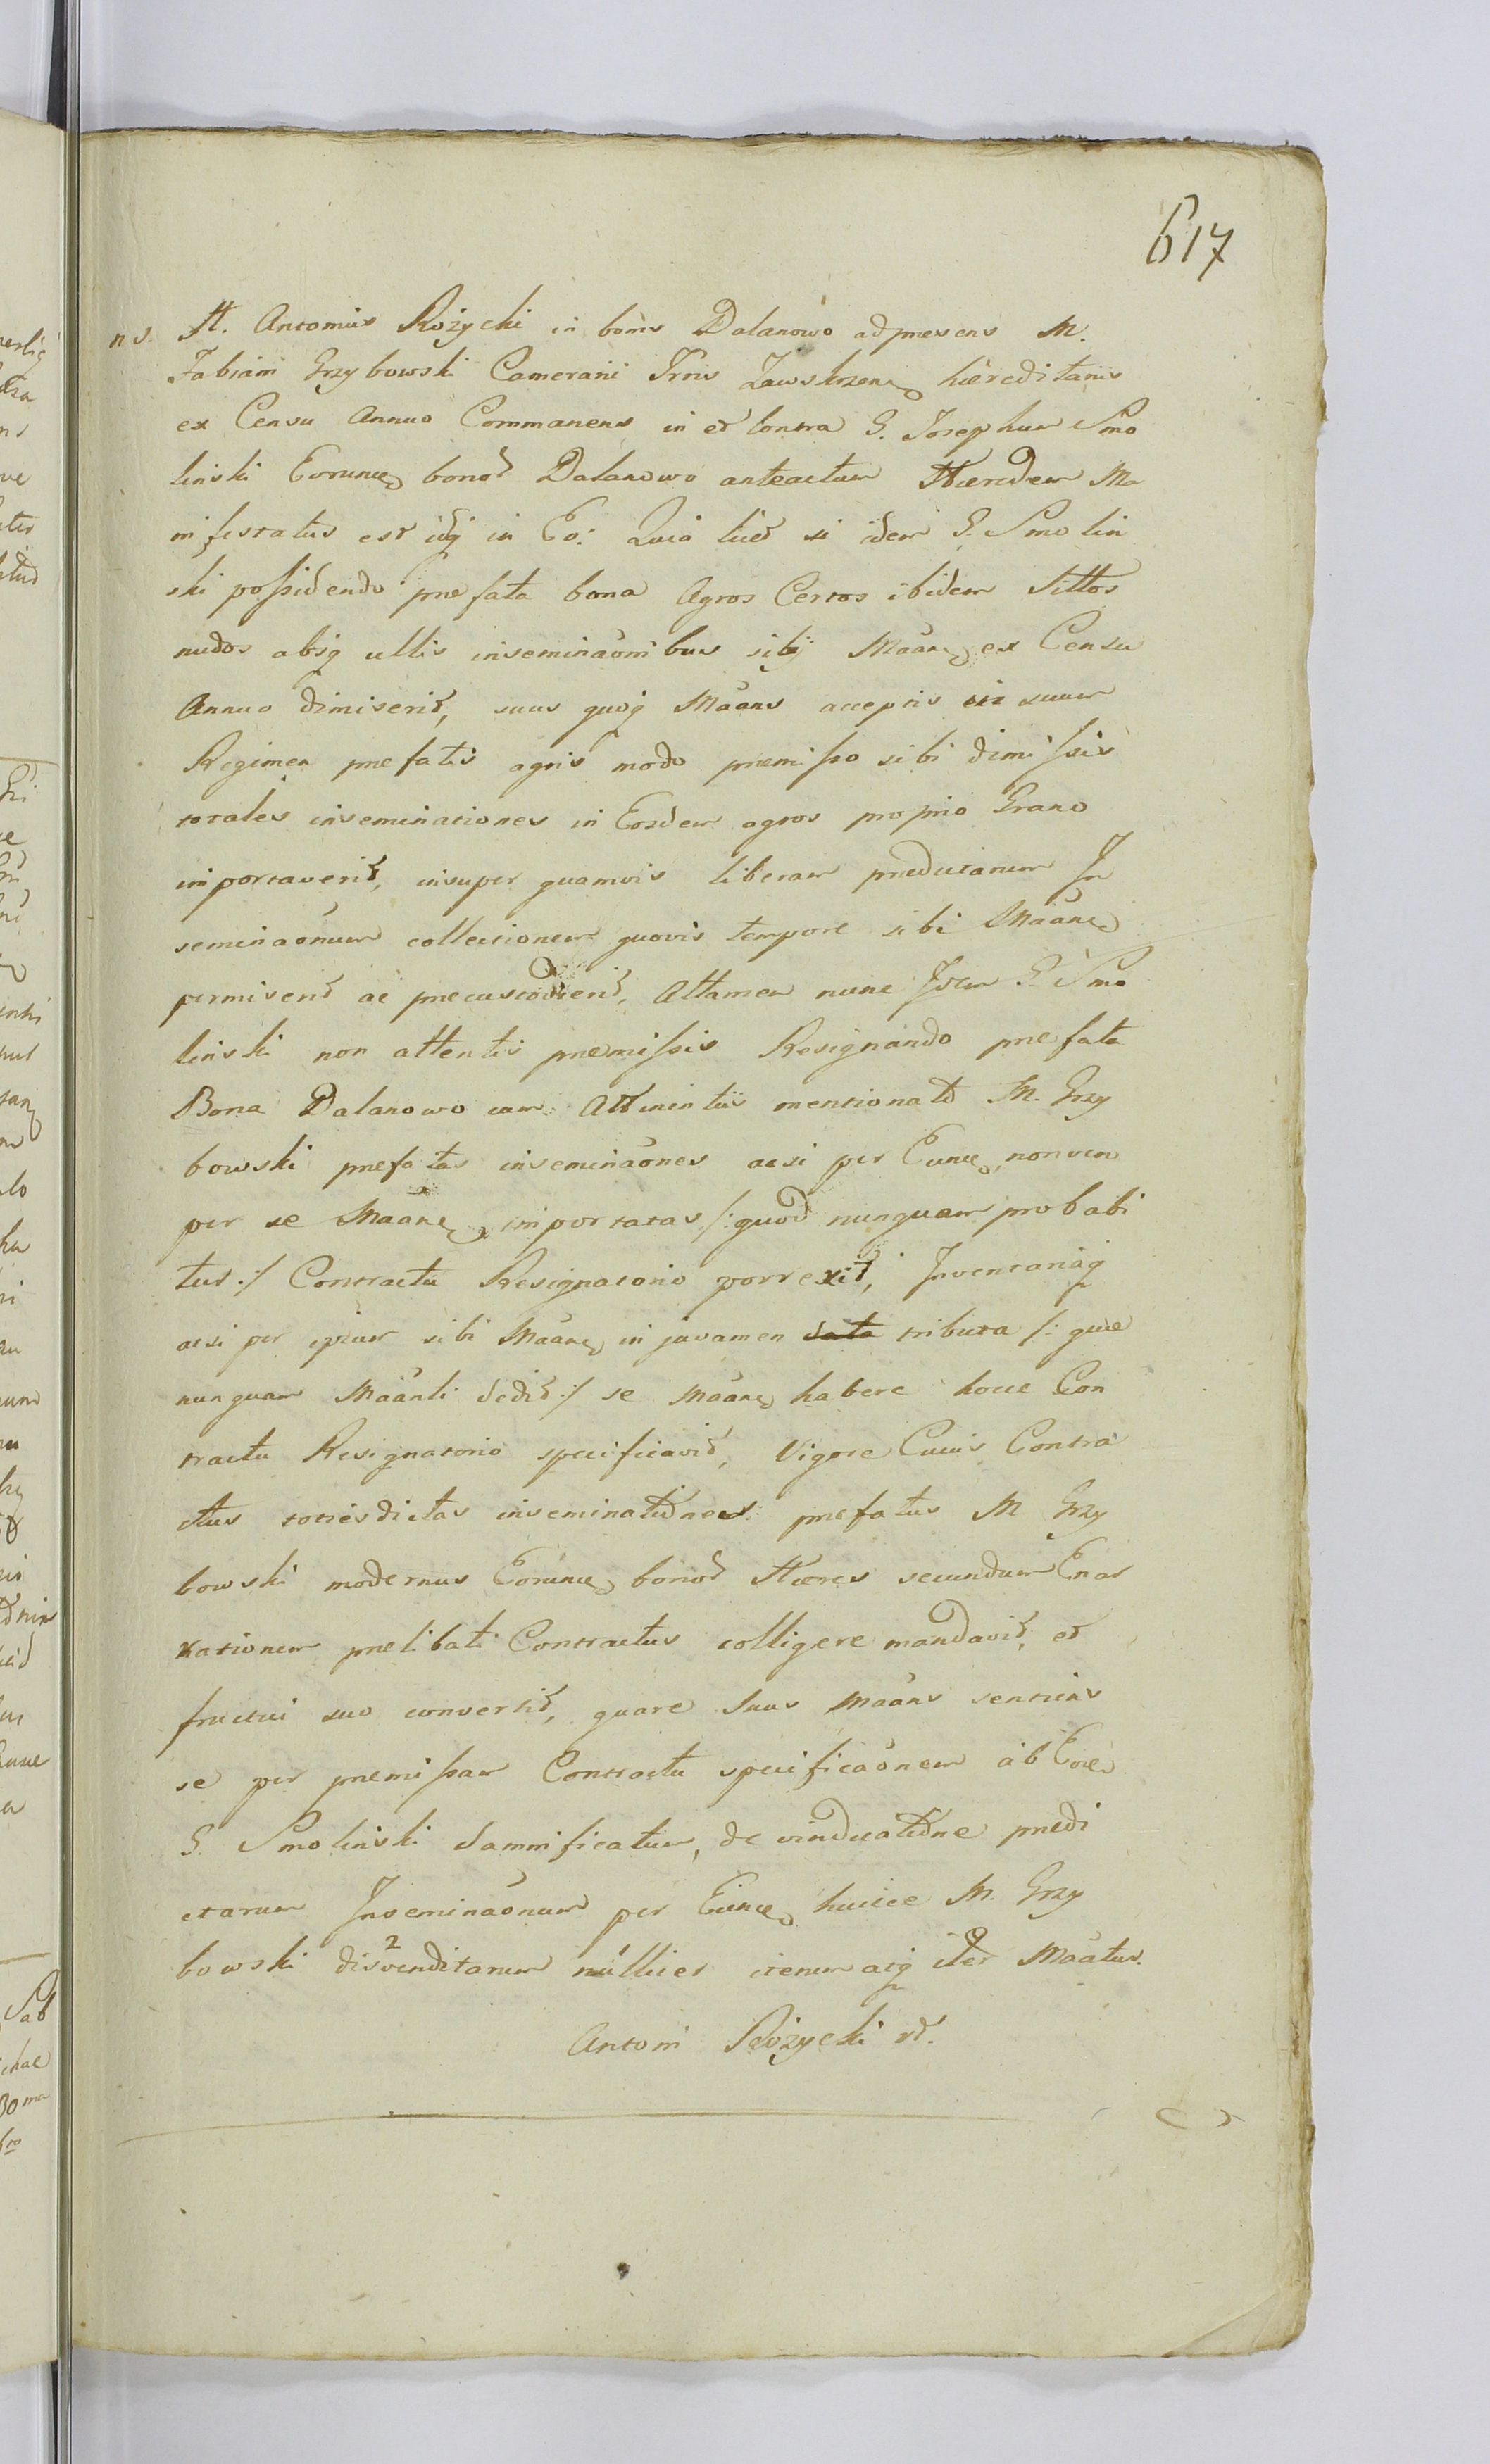 617
ns. H. Antonius Rożycki in bonis Dalanowo adpræsens M.
Fabiani Grzybowski Camerarii Trris Zawskrzen hæreditariis
ex Censu Annuo Commanens in et contra G. Josephum Smo
linski Eorunce bonor Dalanowo anteactum Hæredem Ma
nifestatus est idq in Eo: Quia licet si idem G. Smolin
ski possidendo præfata bona Agros Certos ibidem Sittos
nudos absq ullis inseminaonibus sibi Maane ex Censu
Annuo dimiserit, suus quoq Maans acceptis in suum
Regimen præfatis agris modo præmisso sibi dimissis
totales inseminationes in Eosdem agros proprio Grano
importaverit, insuper quamvis liberam prædictarum In
seminaonum collectionem quovis tempore sibi Maane
permiserit ac præcustodierit, Attamen nunc Idem G. Smo
linski non attentis præmissis Resignando præfata
Bona Dalanowo cum Attinentiis mentionato M. Grzy
bowski præfatas inseminaones acsi per Eunce, non ven
per se Maane importatas /: quod nunquam probabi
tur :/ Contractu Resignatorio porrexit, Inventariaq
acsi per ipsum sibi Maane in juvamen data tributa /: quæ
nunquam Maanti dedit :/ se Maane habere hocce Con
tractu Resignatorio specificavit, Vigore Cuius Contra
ctus totiesdictas inseminationes præfatus M Grzy
bowski modernus Eorunce bonor Hæres secundum Enar
rationem prælibati Contractus colligere mandavit, et
fructui suo convertit, quare Suus Maans sentiens
se per præmissam Contractu specificaonem ab Eoce
G. Smolinski damnificatum, de vindicatione prædi
ctarum Inseminaonum per Eunce huicce M. Grzy
bowski disvenditarum iterum atq iter Maatur.
Antoni Rożycki